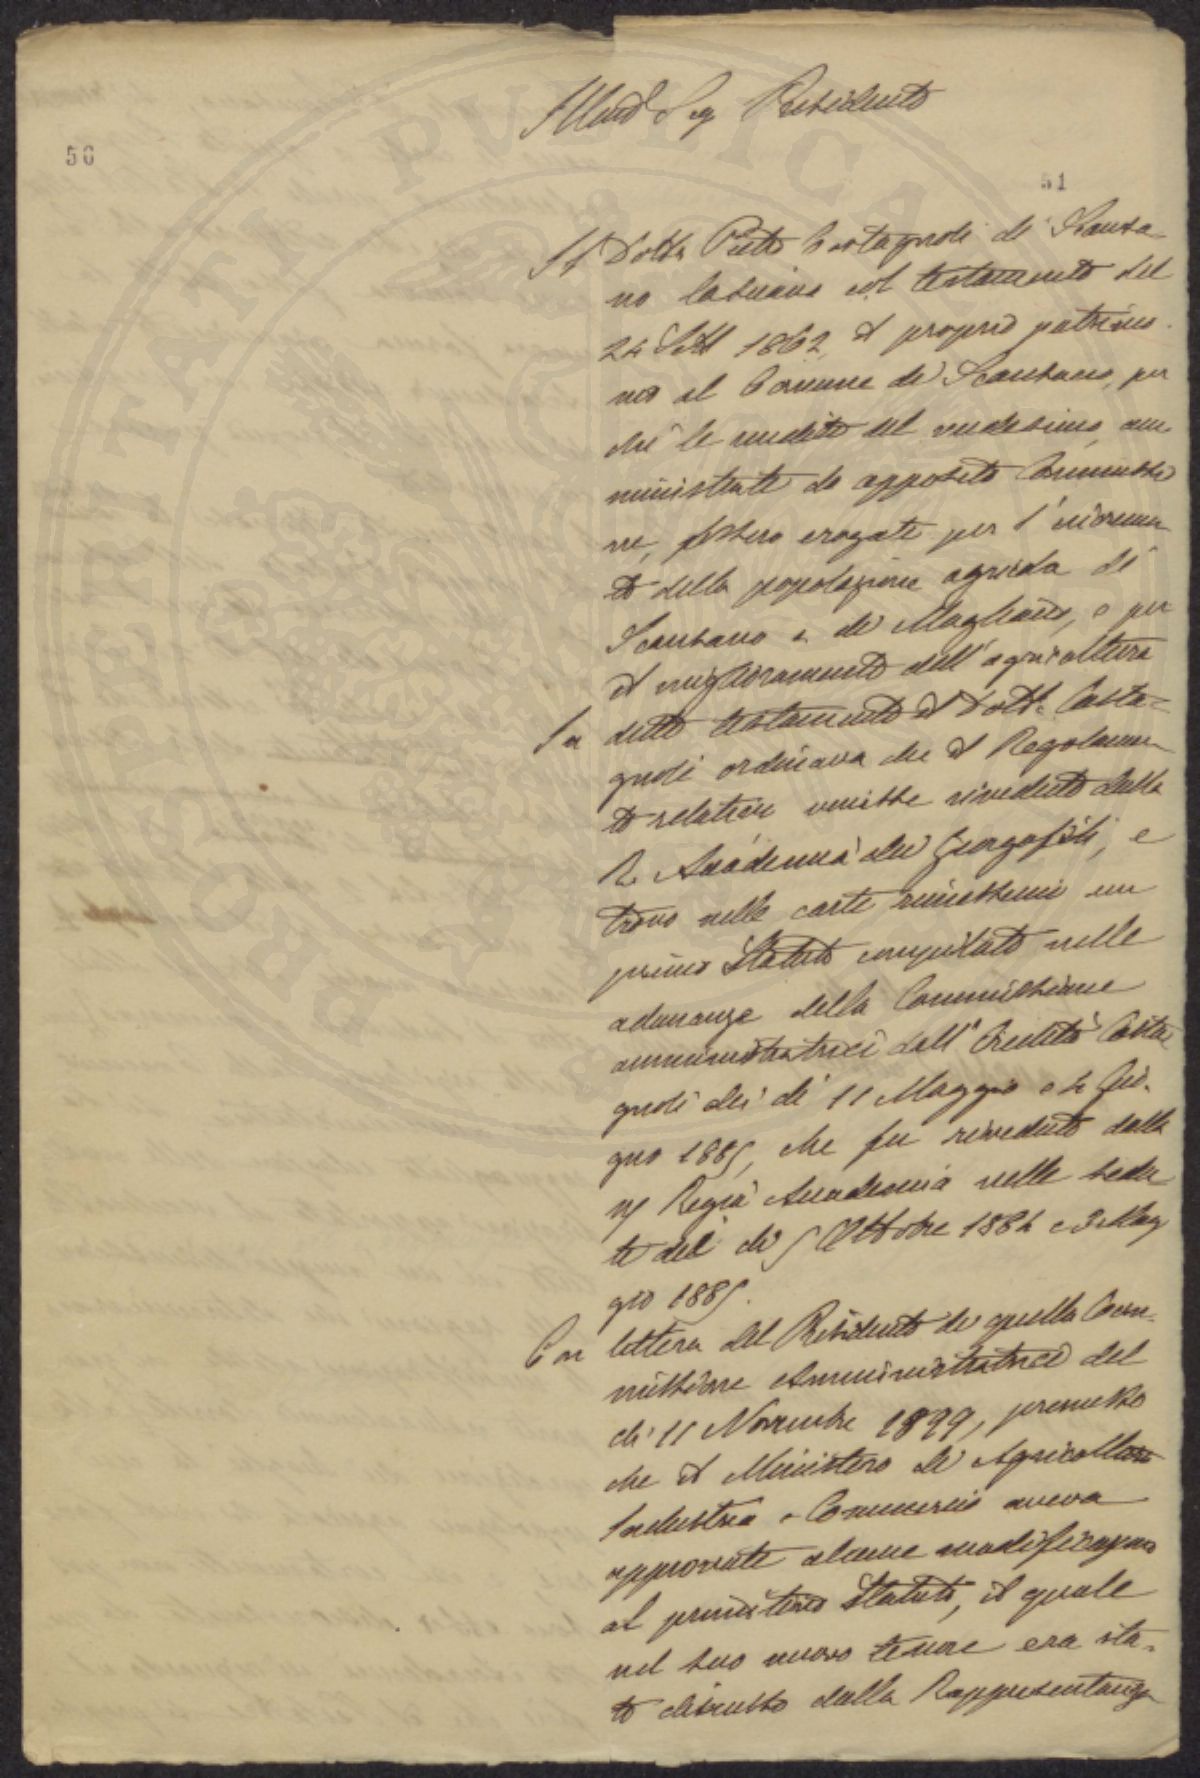 Illmo Sig Presidente
56
51
Il Dott. Pietro Castagnoli di Scansa-
no lasciava col testamento del
24 Sett 1862, il proprio patrimo-
nio al Comune di Scansano, per
ché le rendite del medesimo, am
ministrate da apposita Commissio
ne, fossero erogate per l'increme
to della popolazione agricola di
Scansano e di Magliano, e per
il miglioramento dell'agricoltura
In detto testamento il Dott. Casta-
gnoli ordinava che il Regolamen-
to relativo venisse riveduto dalla
R. Accademia dei Georgofili, e
trovo nelle carte rimessemi un
primo Statuto compilato nelle
adunanze della Commissione
amministratrice dell'Eredità Casta
gnoli dei dì 11 Maggio e 4 Giu-
gno 1885, che fu riveduto dalla
Regia Accademia nelle sedu
te del dì 5 Ottobre 1884 e 3 Mag
gio 1885.
Con lettera del Presidente di quella Com-
missione Amministratrice del
dì 11 Novembre 1899, premesso
che il Ministero di Agricoltura
Industria e Commercio aveva
approvate alcune modificazioni
al primitivo Statuto, il quale
nel suo nuovo tenore era sta-
to discusso dalla Rappresentanza
PROSPERITATI PUBLICAE